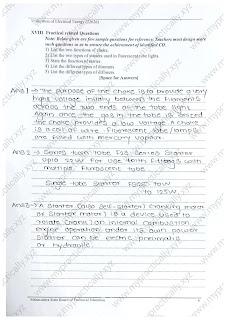 Utilization of Electrical Energy (22626)
XVIII Practical related Questions
Note: Below given are few sample questions for reference. Teachers must design more
such questions so as to ensure the achievement of identified CO.
1) List the two functions of choke.
2) List the two types of starter used in fluorescent tube lights.
3) State the function of starter.
4) List the different types of filaments.
5) List the different types of diffusers.
(Space for Answers)
Ans 1 → The purpose of the choke is to provide a very
high voltage initially between the filaments
across the two ends of the tube light.
Again once the gas in the tube is ionized
the choke provides a low voltage. A choke
is a coil of wire. Fluorescent tube lamps
are filled with mercury vapour.
Ans 2 → Series twin Tube FS2 Series Starter
upto 22W For use with fittings with
multiple fluorescent tube
Single tube Starter 70W
to 125W.
Ans 3 → A Starter (also self-starter) cranking motor
or starter motor) is a device used to
rotate (crank) an internal combustion
engine operation under its own power
Starter can be electric pneumatic
or hydraulic
Maharashtra State Board of Technical Education